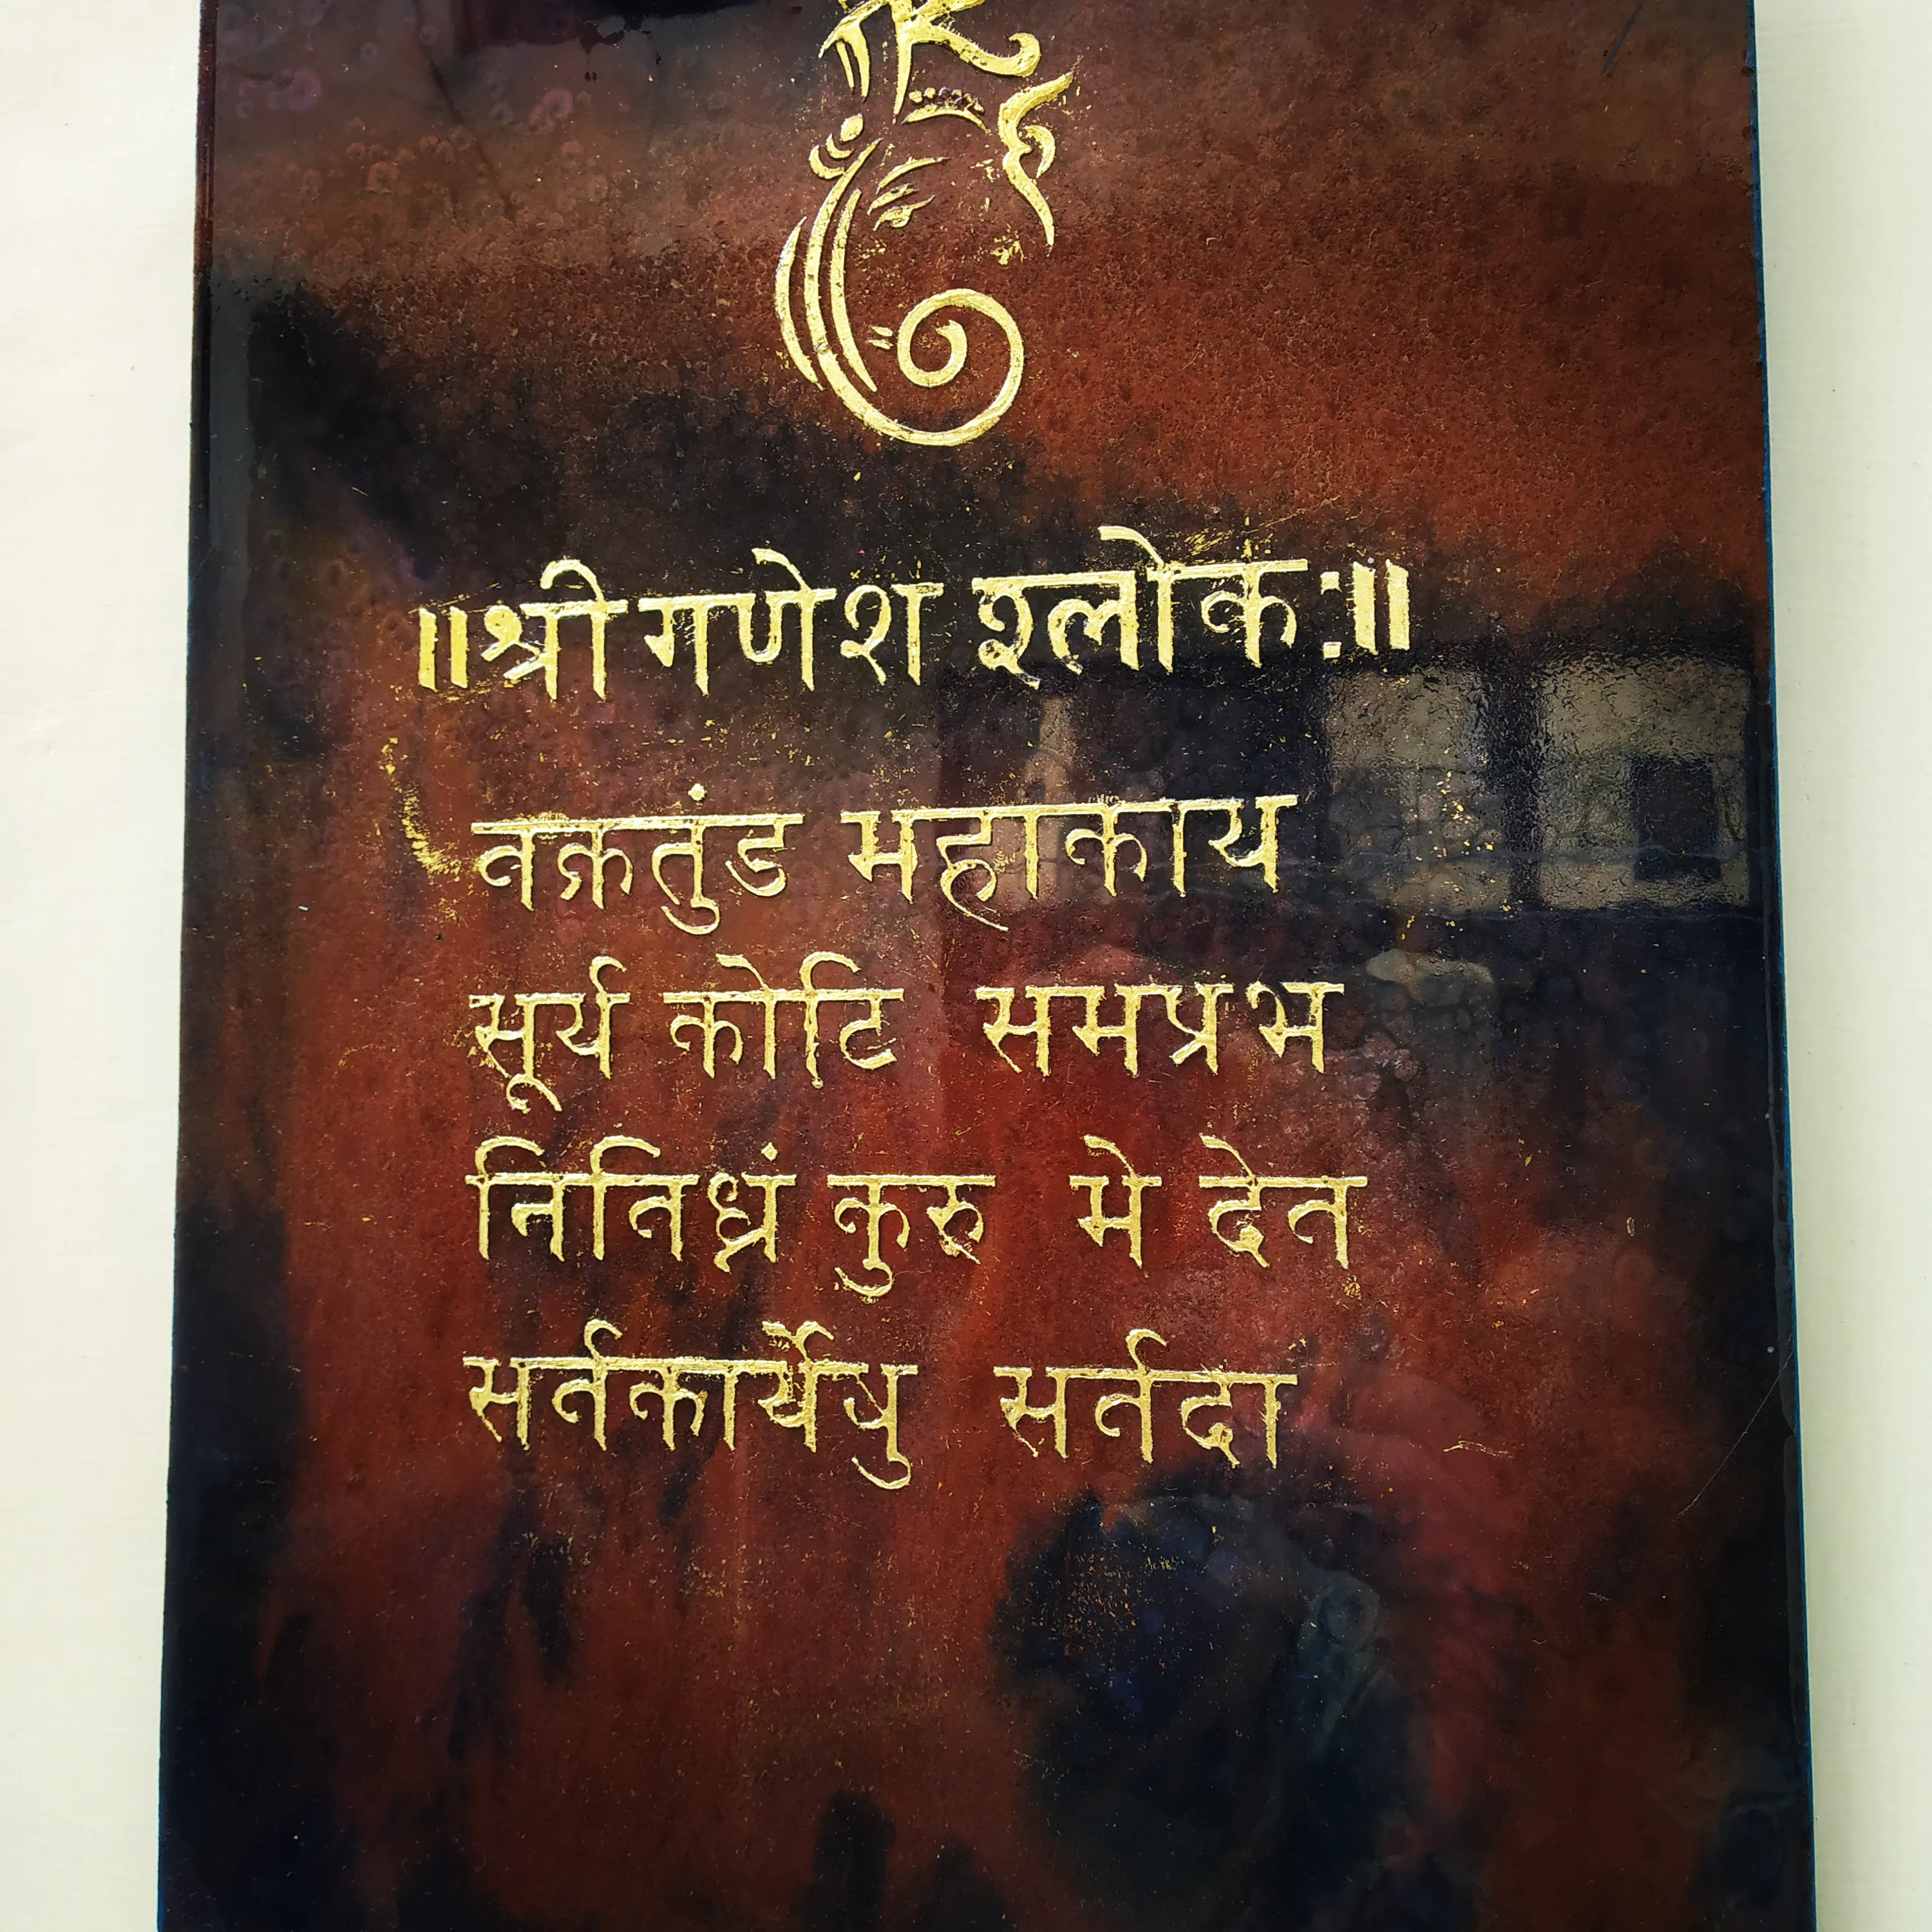 ॥श्री गणेश श्लोक:॥
वक्रतुंड महाकाय
सूर्य कोटि समप्रभ
निविघ्नं कुरु मे देव
सर्वकार्येषु सर्वदा